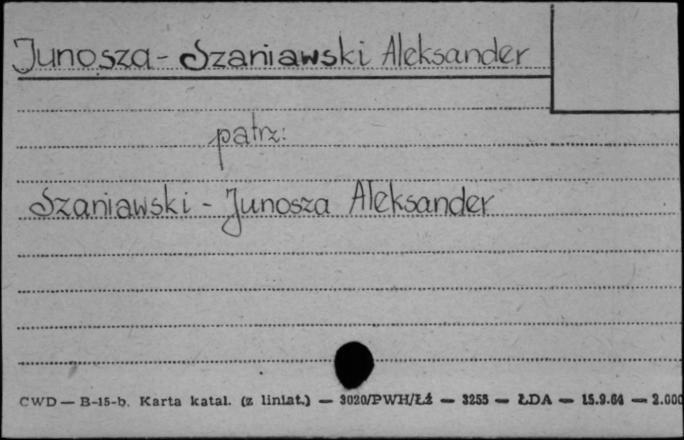 Junosza-Szaniawski Aleksander
patrz:
Szaniawski-Junosza Aleksander
CWD — B-15-b. Karta katal. (z liniat.) — 3020/PWH/Łź — 3255 — ŁDA — 15.9.64 — 2.000